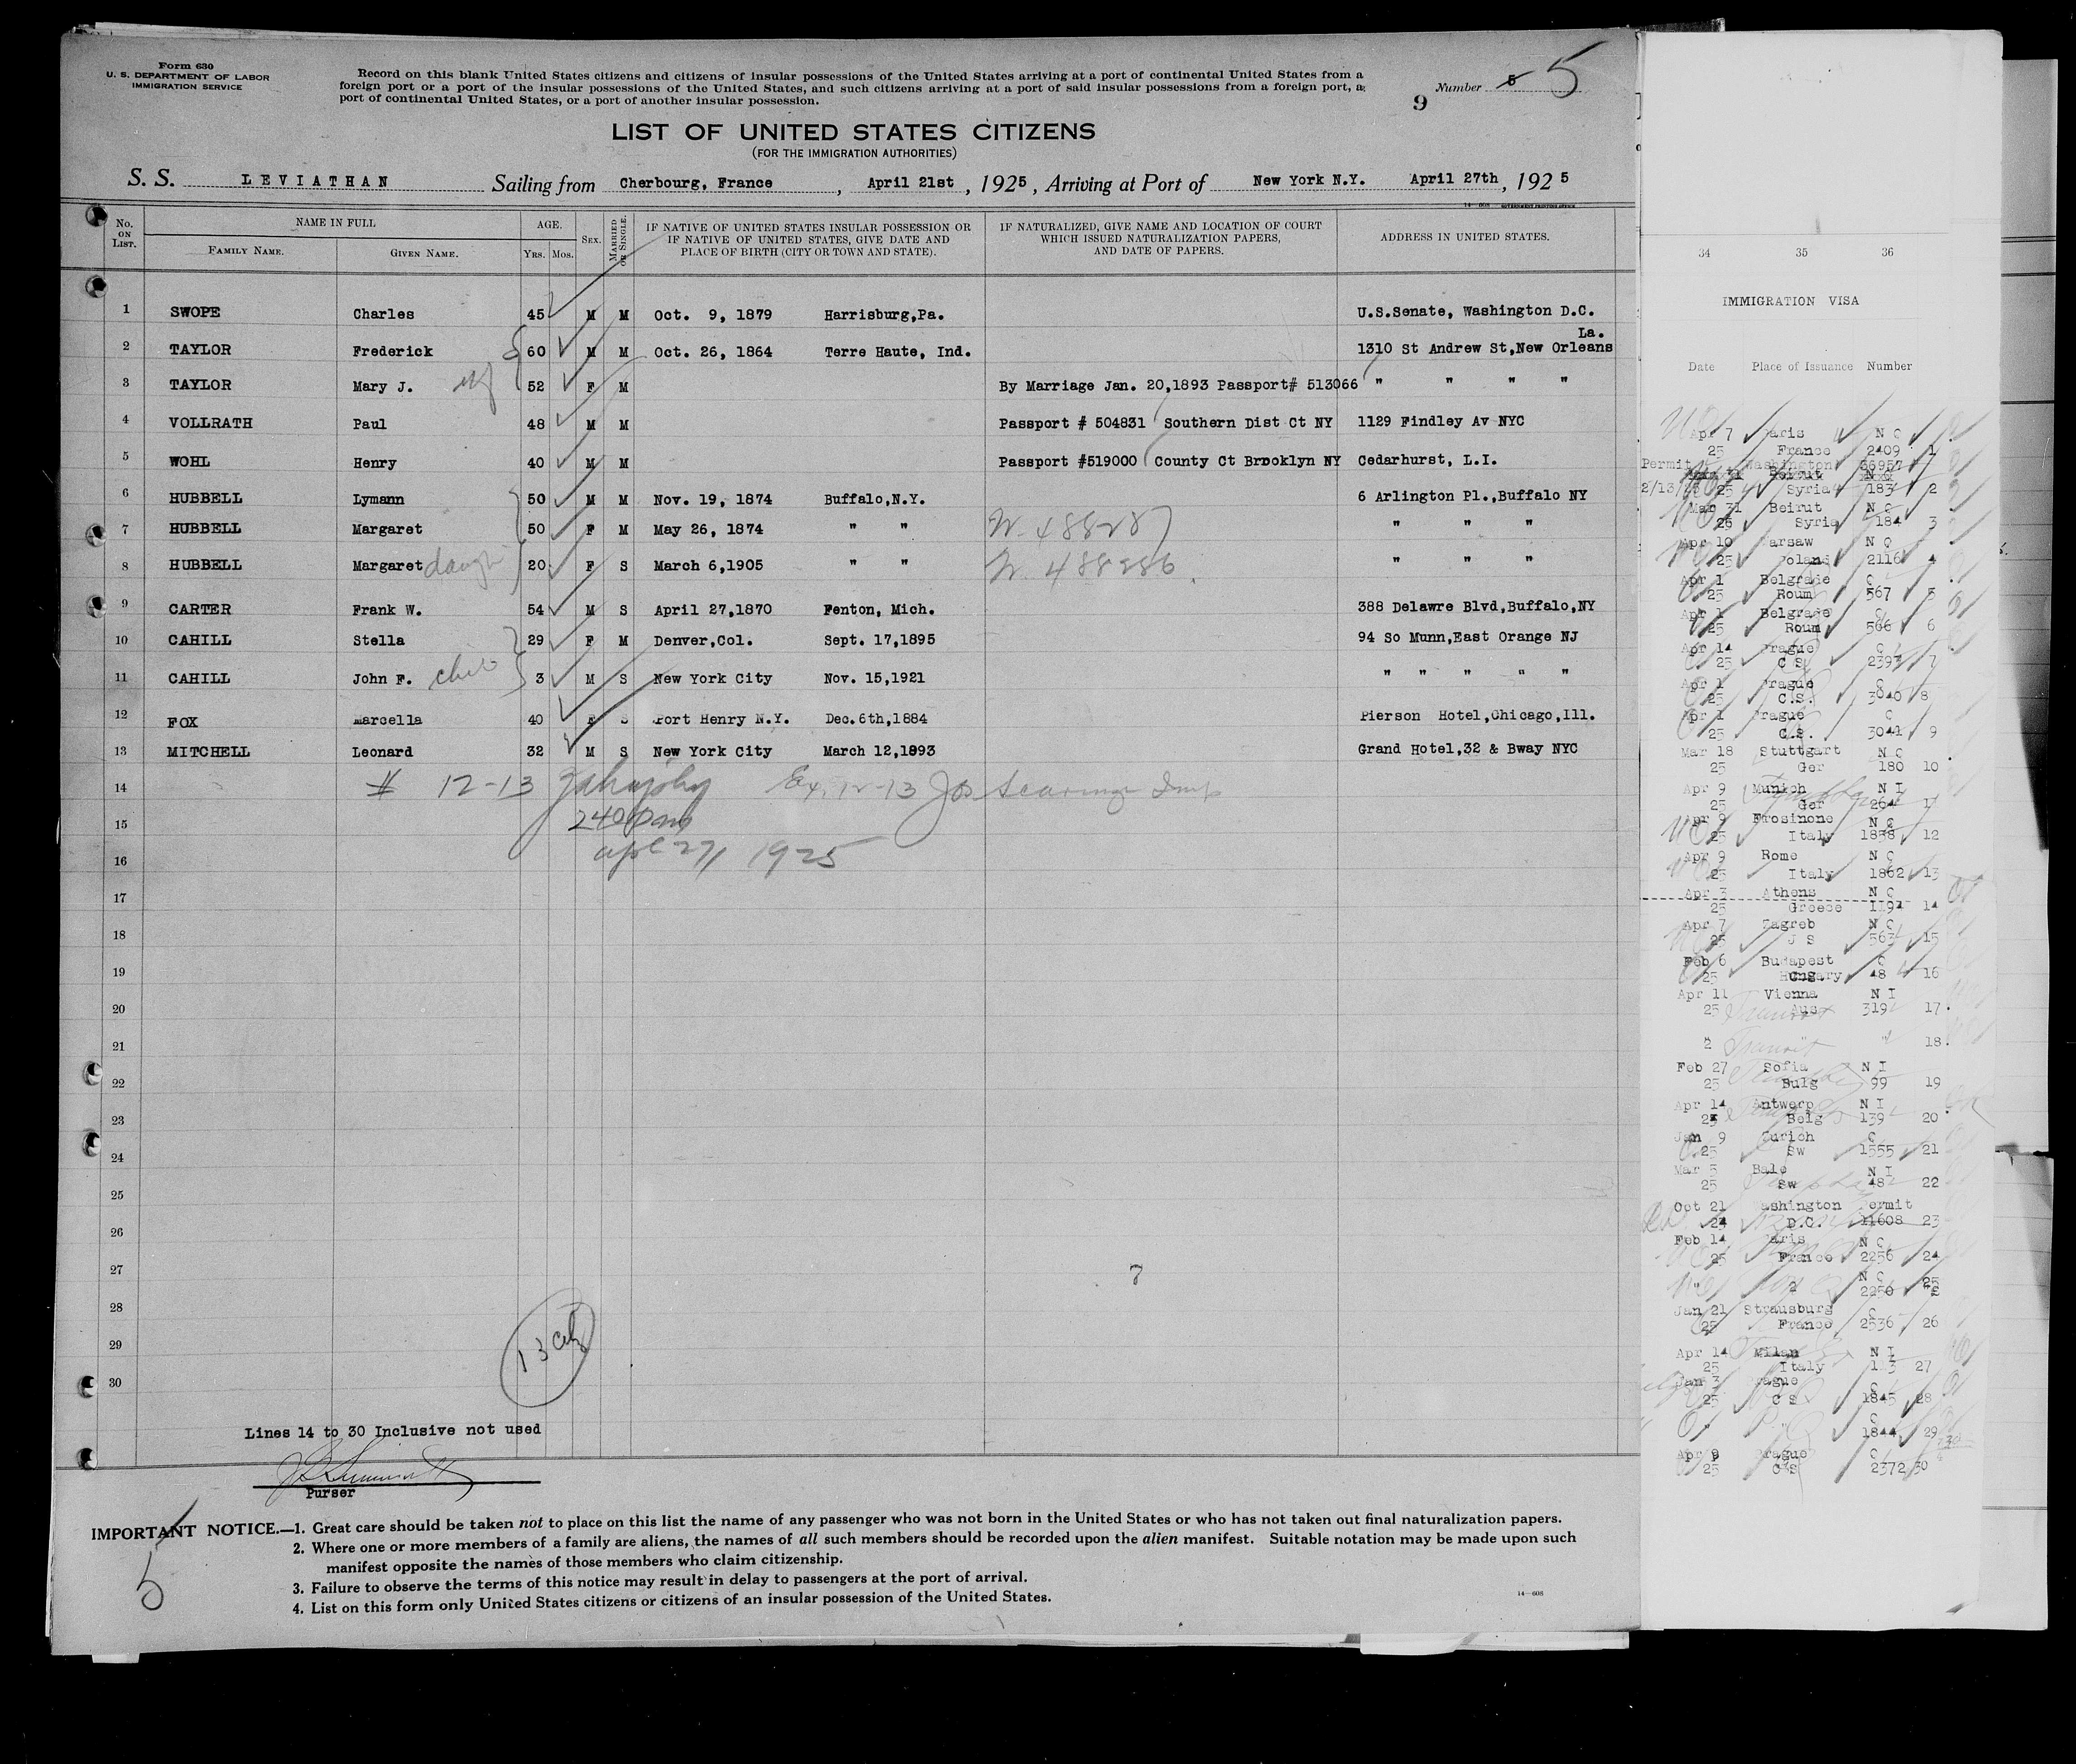 Form 630
U. S. DEPARTMENT OF LABOR
IMMIGRATION SERVICE
Record on this blank United States citizens and citizens of insular possessions of the United States arriving at a port of continental United States from a
foreign port or a port of the insular possessions of the United States, and such citizens arriving at a port of said insular possessions from a foreign port, a
port of continental United States, or a port of another insular possession.
9 Number 5 5
LIST OF UNITED STATES CITIZENS
(FOR THE IMMIGRATION AUTHORITIES)
S. S. LEVIATHAN Sailing from Cherbourg, France, April 21st, 1925, Arriving at Port of New York N.Y. April 27th, 1925
14-608 GOVERNMENT PRINTING OFFICE
No. ON LIST. NAME IN FULL AGE. SEX. MARRIED OR SINGLE. IF NATIVE OF UNITED STATES INSULAR POSSESSION OR IF NATIVE OF UNITED STATES, GIVE DATE AND PLACE OF BIRTH (CITY OR TOWN AND STATE). IF NATURALIZED, GIVE NAME AND LOCATION OF COURT WHICH ISSUED NATURALIZATION PAPERS, AND DATE OF PAPERS. ADDRESS IN UNITED STATES.
FAMILY NAME. GIVEN NAME. YRS. MOS.
1 SWOPE Charles 45 M M Oct. 9, 1879 Harrisburg,Pa. U.S.Senate, Washington D.C.
La.
2 TAYLOR Frederick 60 M M Oct. 26, 1864 Terre Haute, Ind. 1310 St Andrew St,New Orleans
3 TAYLOR Mary J. 52 F M By Marriage Jan. 20,1893 Passport# 513066 " " " "
4 VOLLRATH Paul 48 M M Passport # 504831 Southern Dist Ct NY 1129 Findley Av NYC
5 WOHL Henry 40 M M Passport #519000 County Ct Brooklyn NY Cedarhurst, L.I.
6 HUBBELL Lymann 50 M M Nov. 19, 1874 Buffalo,N.Y. 6 Arlington Pl.,Buffalo NY
7 HUBBELL Margaret 50 F M May 26, 1874 " " N. 488287 " " "
8 HUBBELL Margaret 20 F S March 6,1905 " " N. 488286 " " "
9 CARTER Frank W. 54 M S April 27,1870 Fenton, Mich. 388 Delawre Blvd,Buffalo,NY
10 CAHILL Stella 29 F M Denver,Col. Sept. 17,1895 94 So Munn,East Orange NJ
11 CAHILL John F. 3 M S New York City Nov. 15,1921 " " " " "
12 FOX Marcella 40 F S Port Henry N.Y. Dec.6th,1884 Pierson Hotel,Chicago,Ill.
13 MITCHELL Leonard 32 M S New York City March 12,1893 Grand Hotel,32 & Bway NYC
14 # 12-13 Ex. 12-13 Jos
15
16 Apl 27, 1925
17
18
19
20
21
22
23
24
25
26
27 7
28
29 13
30
Lines 14 to 30 Inclusive not used
Purser
IMPORTANT NOTICE.—1. Great care should be taken not to place on this list the name of any passenger who was not born in the United States or who has not taken out final naturalization papers.
2. Where one or more members of a family are aliens, the names of all such members should be recorded upon the alien manifest. Suitable notation may be made upon such
manifest opposite the names of those members who claim citizenship.
3. Failure to observe the terms of this notice may result in delay to passengers at the port of arrival.
4. List on this form only United States citizens or citizens of an insular possession of the United States.
14-608
5
34 35 36
IMMIGRATION VISA
Date Place of Issuance Number
Apr 7 Paris N Q
25 France 2409 1
Permit Washington 36957
2/13/25 25 Syria 183 2
Mar 31 Beirut N Q
25 Syria 184 3
Apr 10 Warsaw N Q
25 Poland 2116 4
Apr 1 Belgrade Q
25 Roum 567 5
Apr 1 Belgrade Q
25 Roum 566 6
Apr 14 Prague Q
25 C S 2393 7
Apr 1 Prague Q
25 C.S. 3040 8
Apr 1 Prague Q
25 C.S. 3041 9
Mar 18 Stuttgart N Q
25 Ger 180 10
Apr 9 Munich N I
25 Ger 264 11
Apr 9 Frosinone N Q
25 Italy 1858 12
Apr 9 Rome N Q
25 Italy 1862 13
Apr 3 Athens N Q
25 Greece 1194 14
Apr 7 Zagreb N Q
25 J S 563 15
Feb 6 Budapest Q
25 Hungary 48 16
Apr 11 Vienna N I
25 Aus 319 17
Transit " 18
Feb 27 Sofia N I
25 Bulg 99 19
Apr 14 Antwerp N I
25 Belg 139 20
Jan 9 Zurich Q
25 Sw 1555 21
Mar 3 Bale N I
25 Sw 48 22
Oct 21 Washington Permit
24 D.C. 11608 23
Feb 14 Paris N Q
25 France 2256 24
" N Q 25
2250
Jan 21 Strausburg Q
25 France 2536 26
Apr 14 Milan N I
25 Italy 143 27
Jan 3 Prague Q
25 C S 1845 28
" " Q
1844 29
Apr 9 Prague Q
25 C S 2372 30